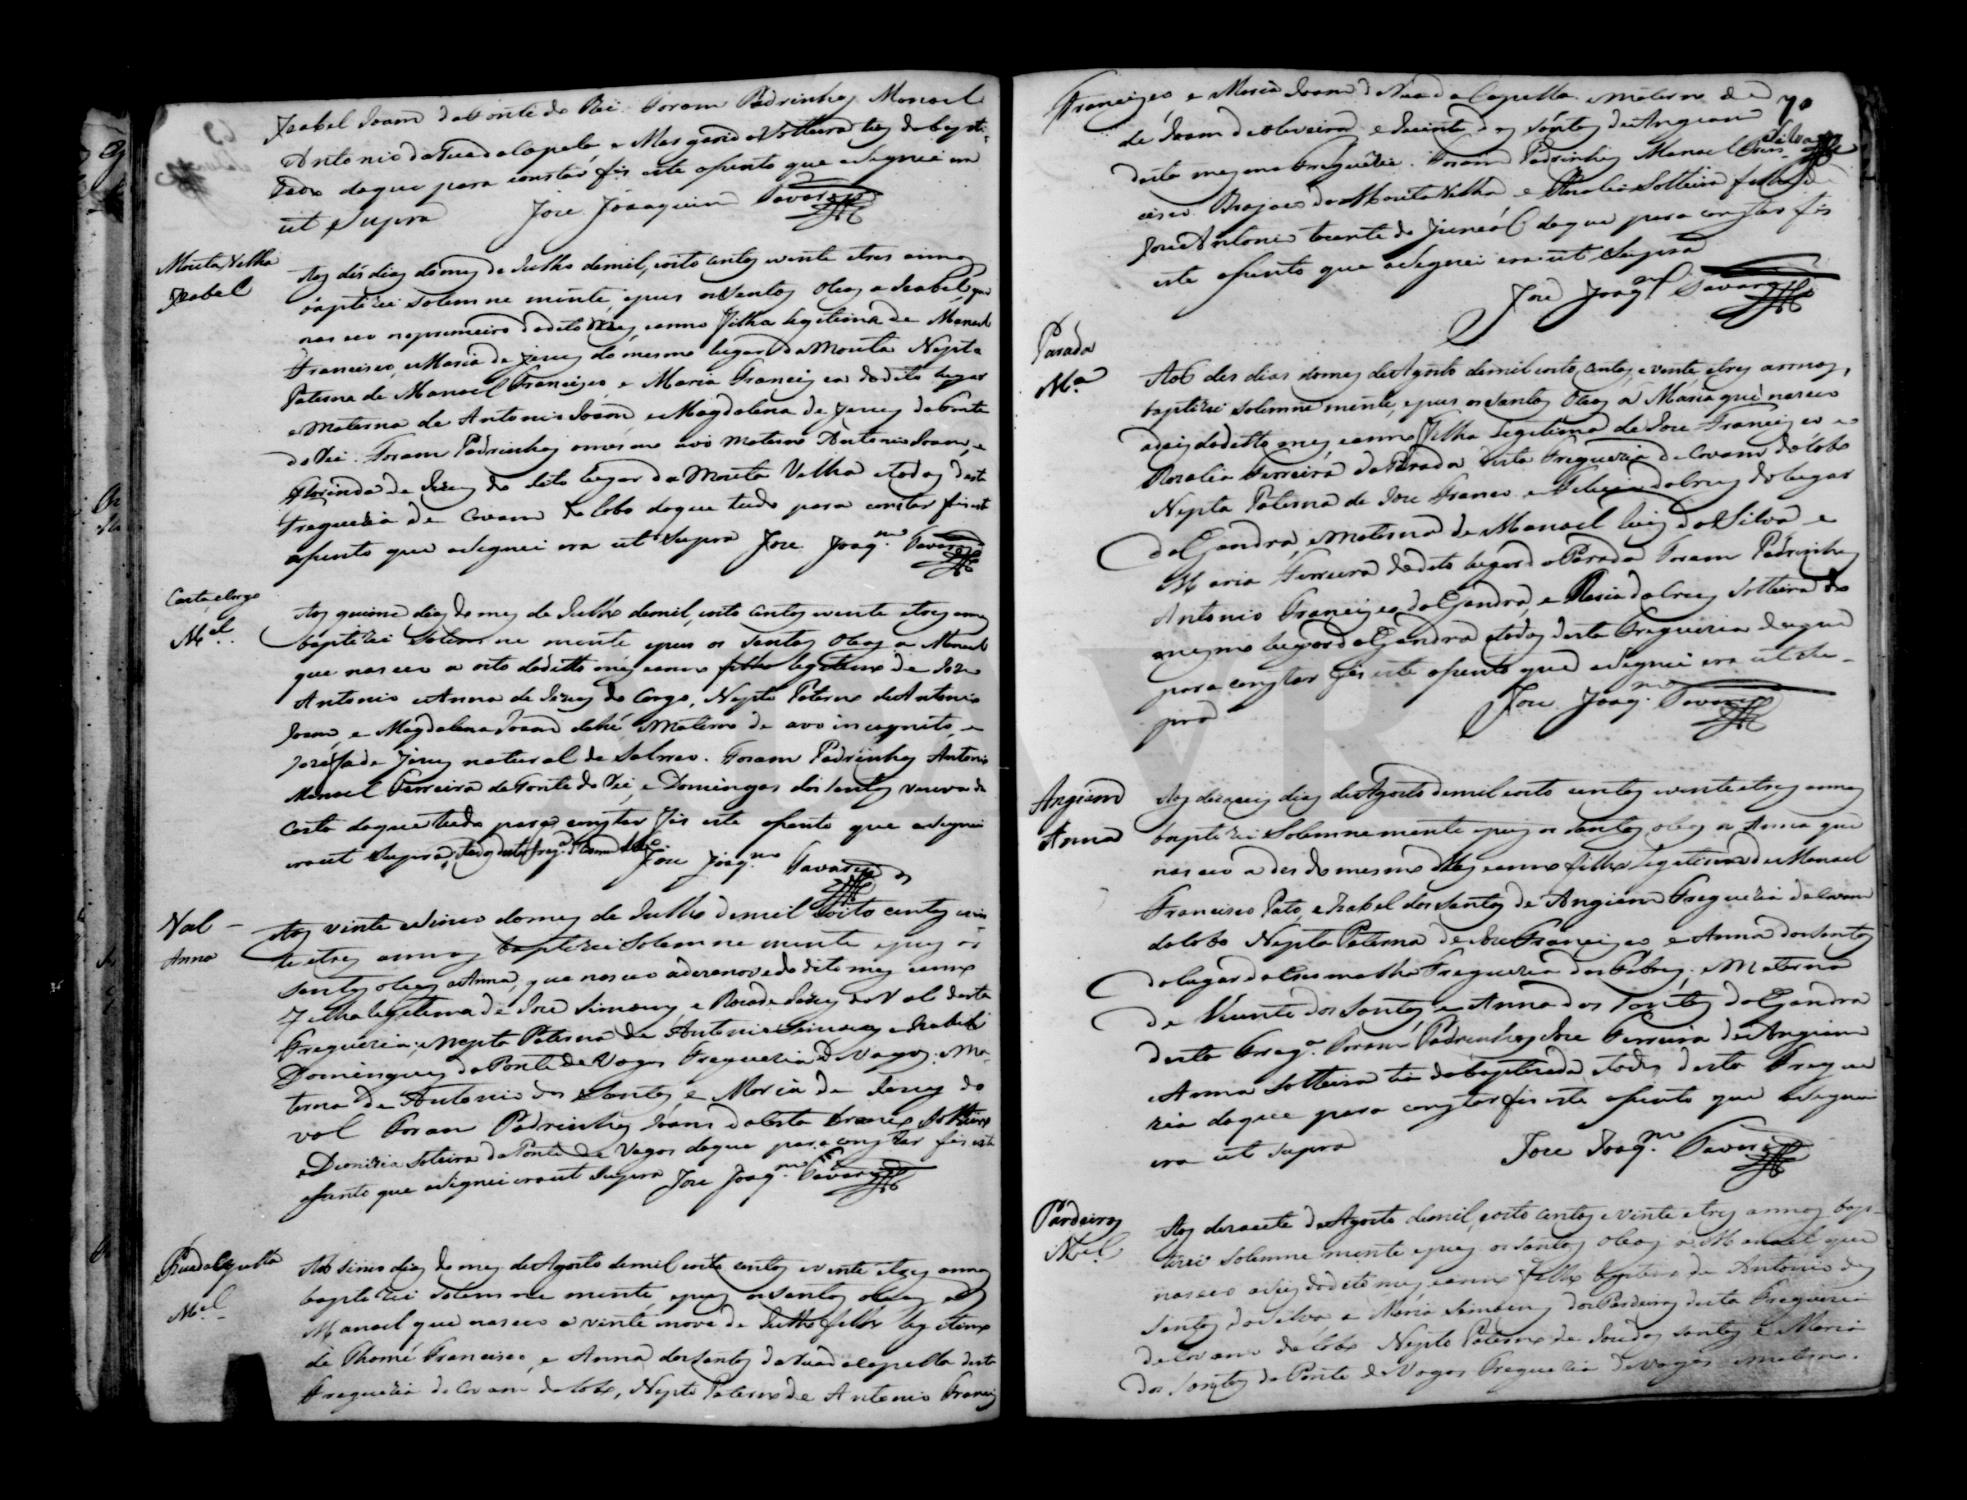 Izabel Joam da Fonte do Rei. Foram Padrinhos Manoel
Antonio da Rua da Capela, e Margarida Solteira tia do bapti-
zado daque para constar fis este asento que asignei era
ut supra Joze Joaquim Tavares
Mouta Velha
Izabel
Aos dés dias do mes de Julho de mil, oito centos evente etres annos
baptizei solemne mente, epus os Santos Oleos a Izabel que
nasceo no primeiro do dito mes, eanno Filha legitima de Manoel
Francisco, e Maria de Jezus do mesmo lugar da Mouta Nepta
Paterna de Manoel Francisco e Maria Francisca do dito lugar
e Materna de Antonio Joam, e Magdalena de Jezus da Fonte
do Rei. Foram Padrinhos omesmo avó Materno Antonio Joam, e
Florinda de Jezus do dito lugar da Mouta Velha e todos desta
Freguezia de Covam do Lobo daque tudo para constar fis este
asento que asignei era ut supra Joze Joaq.m Tavares
M.el
Aos quinze dias do mes de Julho de mil, oito centos evente etres annos
baptizei solemne mente epus os Santos Oleos a Manoel
que nasceo a oito do ditto mes eanno filho legitimo de Joze
Antonio e Anna de Jezus do Corgo, Nepto Paterno de Antonio
Joam, e Magdalena Joam dahi, Materno de avo incognito, e
Jozefa de Jezus natural de Salreo. Foram Padrinhos Antonio
Manoel Ferreira da Fonte do Rei, e Domingas dos Santos veuva da
Costa daque tudo para constar fis este asento que asignei
era ut supra, e todos desta freg.a de Covam do Lobo. Joze Joaq.m Tavares
Val
Anna
Aos vinte e sinco do mes de Julho de mil oito centos evin
te etres annos baptizei solemne mente epus os
Santos oleos a Anna, que nasceo a dezanove do dito mes eanno
Filha legitima de Joze Simoens, e Roza de Jezus do Val desta
Freguezia, Nepta Paterna de Antonio Simoens, e Izabel
Domingues da Ponte de Vagos Freguezia de Vagos. Ma-
terna de Antonio dos Santos, e Maria de Jezus do
val Foram Padrinhos Joam da Costa Solteiro
e Dionizia Solteira da Ponte de Vagos daque para constar fis este
asento que asignei era ut supra Joze Joaq.m Tavares
Rua da Capella
M.el
Aos sinco dias do mes de Agosto de mil oito centos evente etres annos
baptizei solemne mente, epus os santos oleos a
Manoel que nasceo a vinte nove de Julho filho legitimo
de Thomé Francisco, e Anna dos Santos da Rua da Capella desta
Freguezia de Covam do Lobo, Nepto Paterno de Antonio Francis
70
Silva
Francisco e Maria Joam da Rua da Capella. e Materno
de Joam de Oliveira, e Jacinta dos Santos de Angiam
desta mesma Freguezia. Foram Padrinhos Manoel Fran-
cisco da Mouta Velha, e Rozalia Solteira filha de
Joze Antonio daque para constar fis
este asento que asignei era ut supra
Joze Joaq.m Tavares
Parada
M.a
Aos des dias do mes de Agosto de mil oito centos, e vente etres annos,
baptizei solemne mente, epus os santos Oleos a Maria que nasceo
a seis do ditto mes, eanno Filha Legitima de Joze Francisco e
Rozalia Ferreira da Parada desta Freguezia de Covam do Lobo
Nepta Paterna de Joze Franco e da Cruz do lugar
da Gandra, e Materna de Manoel Luis da Silva e
Maria Ferreira do dito lugar da Parada Foram Padrinhos
Antonio Francisco da Gandra, e Maria da Cruz Solteira do
mesmo lugar da Gandra e todos desta Freguezia daque
para constar fis este asento que asignei era ut su-
pra Joze Joaq.m Tavares
Angiam
Anna
Aos dezaseis dias de Agosto de mil oito centos evente etres annos
baptizei Solemnemente epus os santos oleos a Anna que
nasceo a des do mesmo mes eanno filha legitima de Manoel
Francisco Pato, e Izabel dos Santos de Angiam Freguezia de Covam
do Lobo Nepta Paterna de Joze Francisco e Anna dos Santos
do lugar da Freguezia dos Febres. e Materna
de Vicente dos Santos e Anna dos Santos da Gandra
desta Freg.a. Foram Padrinhos Joze Ferreira de Angiam
e Anna Solteira tia da baptizada e todos desta Fregue
zia daque para constar fis este asento que asignei
era ut supra Joze Joaq.m Tavares
Pardeiros
M.el
Aos dezasete de Agosto de mil, e oito centos e vinte e tres annos bap-
tizei solemne mente epus os santos oleos a Manoel que
nasceo a seis do dito mes eanno filho legitimo de Antonio dos
Santos da Silva e Maria Simoens dos Pardeiros desta Freguezia
de Covam do Lobo Nepto Paterno de Joze dos Santos e Maria
dos Santos da Ponte de Vagos Freguezia de Vagos e Materno